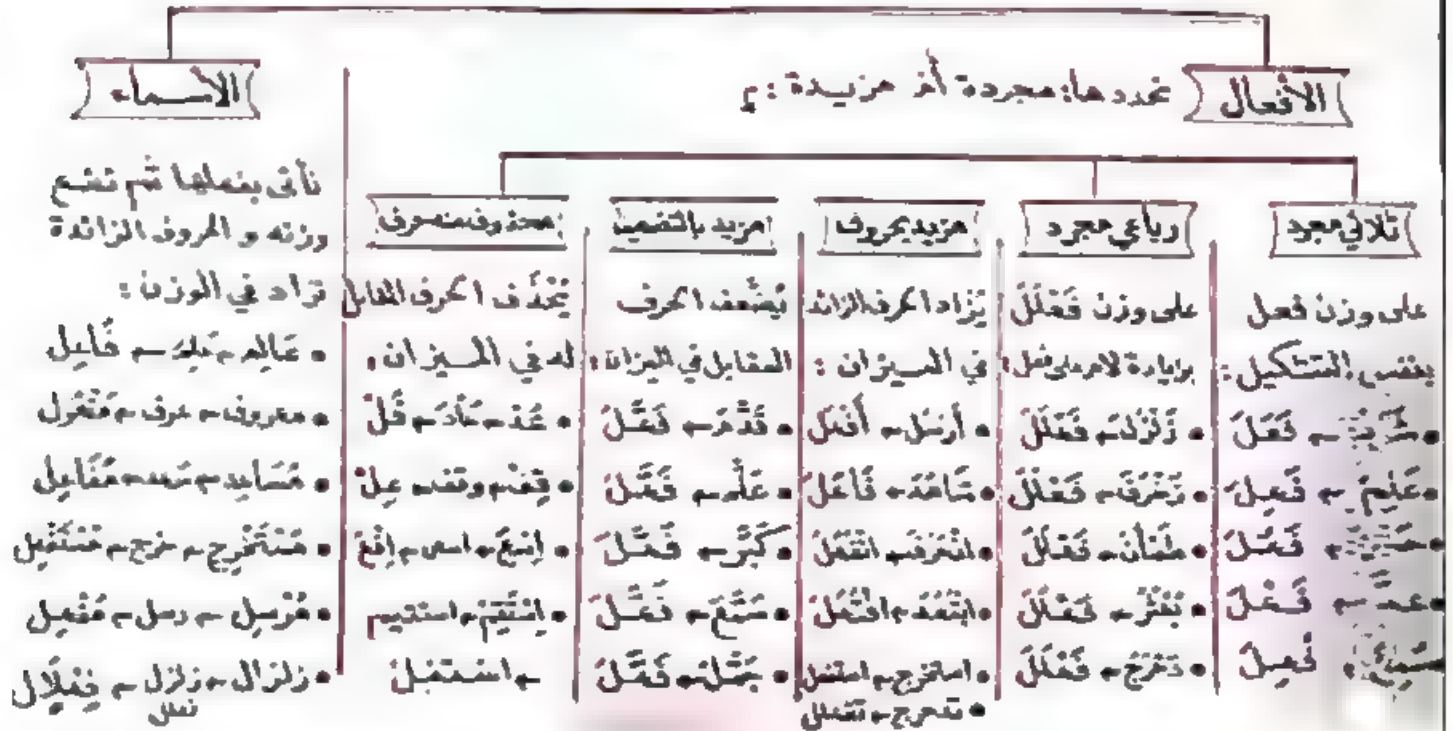 الأفعال نحددها: مجردة أم مزيدة:
الأسماء
ثلاثي مجرد
على وزن فعل
بنفس التشكيل:
فَعَلَ
• عَلِمَ ← فَعِلَ
فَعَلَ
فَعَلَ
فَعِلَ
رباعي مجرد
على وزن فَعْلَلَ
بزيادة لام على فعل:
• زَلْزَلَ ← فَعْلَلَ
• زَخْرَفَ ← فَعْلَلَ
• طَمْأَنَ ← فَعْلَلَ
• بَعْثَرَ ← فَعْلَلَ
• دَحْرَجَ ← فَعْلَلَ
مزيد بحروف
يُزاد الحرف الزائد
في الميزان:
• أرسل ← أَفْعَلَ
• فَاعَلَ
• انفعل
• افْتَعَلَ
• استخرج ← استفعل
• تدحرج ← تفعلل
مزيد بالتضعيف
يُضَعَّف الحرف
المقابل في الميزان:
• قَدَّمَ ← فَعَّلَ
• عَلَّم ← فَعَّلَ
• كَبَّرَ ← فَعَّلَ
• فَعَّلَ
• فَعَّلَ
محذوف منه حرف
يُحْذَف الحرف المقابل
له في الميزان:
• عُدْ ← عَادَ ← فُلْ
• قِفْ ← وقف ← عِلْ
• اِسْعَ ← اسعى ← اِفْعَ
• اِسْتَقِمْ ← استقيم
← اسْتَفِلْ
نأتى بفعلها ثم نضع
وزنه و الحروف الزائدة
تزاد في الوزن:
• عَالِم ← عَلِمَ ← فَاعِل
• معروف ← عرف ← مَفْعُول
• مُسَاعِد ← سَعِد ← مُفَاعِل
• مُسْتَخْرِج ← خرج ← مُسْتَفْعِل
• مُرْسِل ← رسل ← مُفْعِل
• زلزال ← زلزل ← فِعْلَال
فعلل